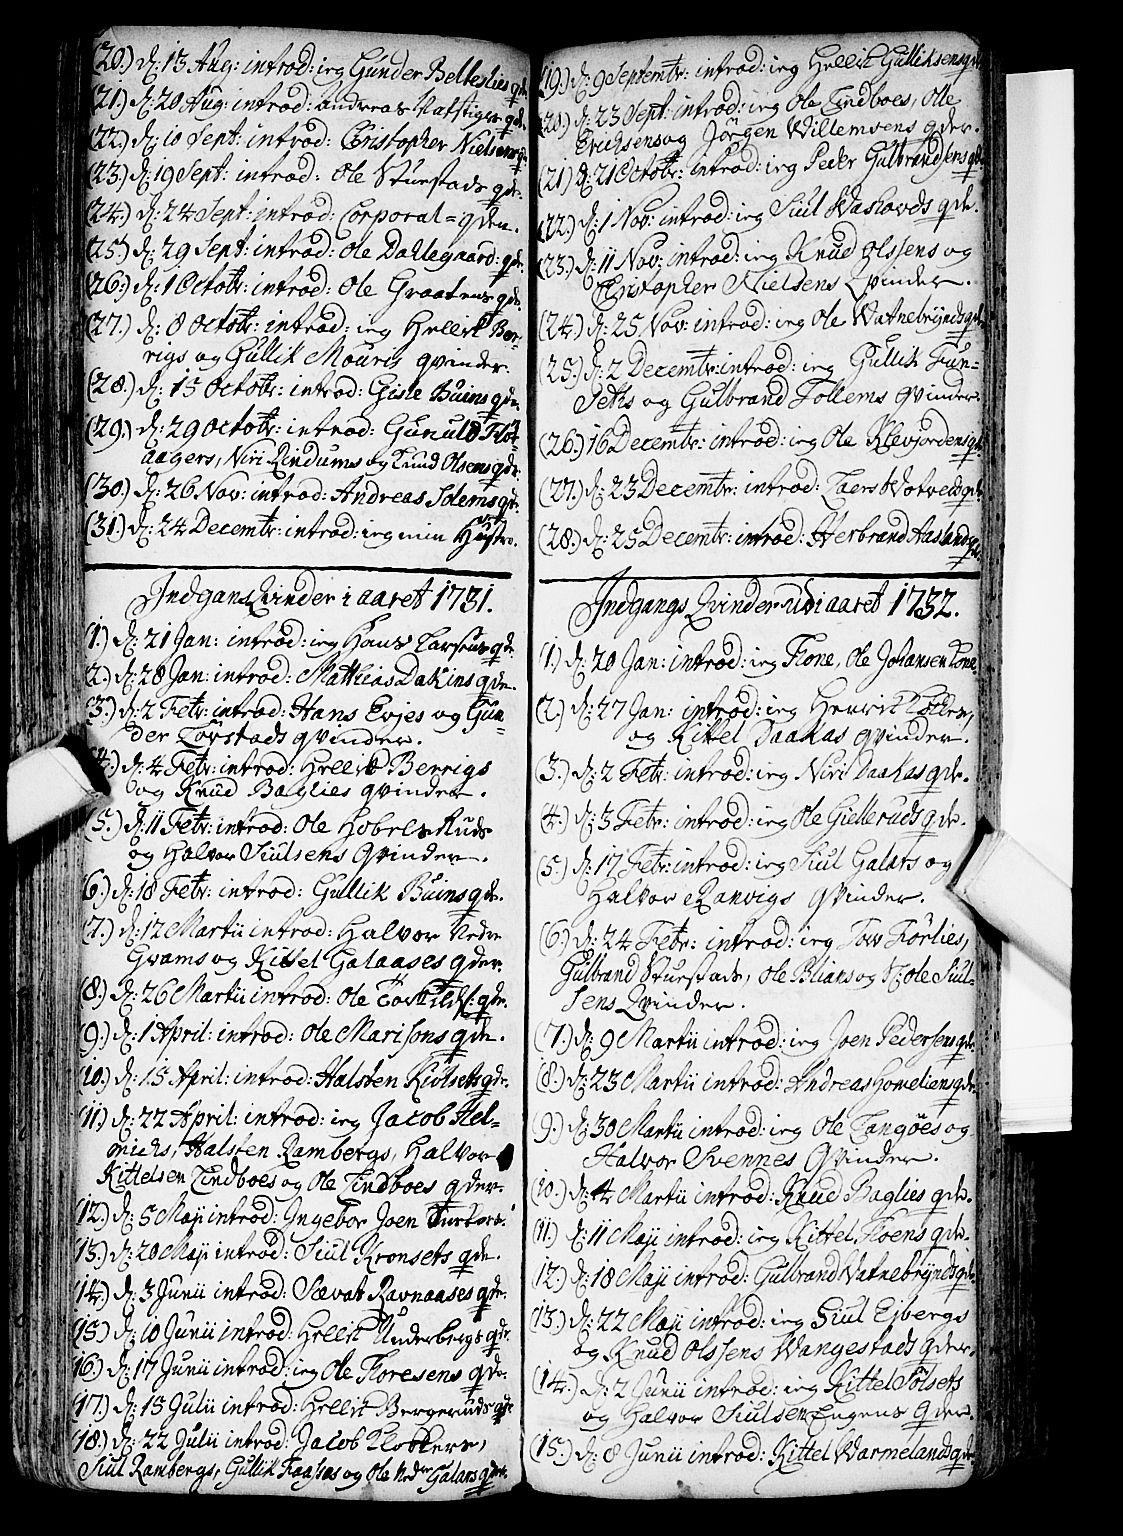 (20.) d: 13 Aug: introd: ieg Gunder Belleslies qde.
(21.) d: 20 Aug: introd: Andreas qde.
(22.) d: 10 Sept: introd: Christopher Nielsens qde.
(23.) d: 19 Sept: introd: Ole Stuestads qde.
(24.) d: 24 Sept: introd: Corporal = qden.
(25.) d: 29 Sept: introd: Ole Dahlegaard: qde.
(26.) d: 1 Octobr: introd: Ole Graatens qde.
(27.) d: 8 Octobr: introd: ieg Hellik Ber-
rigs og Gullik Mouris qvinder.
(28.) d: 15 Octobr: introd: Gisle Buins qde.
(29.) d: 29 Octobr: introd: Gunuld Flot-
aagers, Niri Lindums og Knud Olsens qde.
(30.) d: 26 Nov: introd: Andreas Solems qde.
(31.) d: 24 Decembr: introd: ieg min Hustro.
Indgans Qvinder i aaret 1731.
(1.) d: 21 Jan: introd: ieg Hans Larsens qde.
(2.) d: 28 Jan: introd: Mathias Dakins qde.
(3.) d: 2 Febr: introd: Hans Evjes og Gun-
der Torstads qvinder.
(4.) d: 4 Febr: introd: Hellik Berrigs
og Knud Baglies qvinder.
(5.) d: 11 Febr: introd: Ole Hobels Ruds
og Halvor Siulsens Qvinder.
(6.) d: 18 Febr: introd: Gullik Buins qde.
(7.) d: 12 Martii introd: Halvor Nedre
Grams og Kittel Galaases qder.
(8.) d: 26 Martii introd: Ole Torkilds: qde.
(9.) d: 1 April: introd: Ole Marisons qde.
(10.) d: 15 April: introd: Halsten Kiolsets qde.
(11.) d: 22 April: introd: ieg Jacob Hel-
michs, Halsten Rambergs, Halvor
Kittelsen Lindboes og Ole Lindboes qder.
(12.) d: 5 Maji introd: Ingebor Joen
(13.) d: 20 Maji introd: Siul Kronsets qde.
(14.) d: 3 Junii introd: Sævat Ravnaases qde.
(15.) d: 10 Junii introd: Hellik Underbergs qde.
(16.) d: 17 Junii introd: ieg Ole Floresens qde.
(17.) d: 15 Julii introd: Hellik Bergeruds qde.
(18.) d: 22 Julii introd: Jacob Klokkers,
Siul Rambergs, Gullik Traaſas og Ole Nedre Galaas qder.
(19.) d: 9 Septembr: introd: ieg Hellik Gulliksens qde.
(20.) d: 23 Sept: introd: ieg Ole Lindboes, Olle
Erichsens og Jörgen Willemsens qder.
(21.) d: 21 Octobr: introd: ieg Peder Gulbrandsens qde.
(22.) d: 1 Nov: introd: ieg Siul Waslovds qde.
(23.) d: 11 Nov: introd: ieg Knud Olssens og
Christopher Nielsens Qvinder.
(24.) d: 25 Nov: introd: ieg Ole Watnebrynds qde.
(25.) d: 2 Decembr: introd: ieg Gullik Fun-
Seths og Gulbrand Follems Qvinder.
(26.) 16 Decembr: introd: ieg Ole Klevjordens qde.
(27.) d: 23 Decembr: introd: Laers Wotvelds qde.
(28.) d: 25 Decembr: introd: Herbrand Aaslands qde.
Indgangs Qvinder udi aaret 1732.
(1.) d: 20 Jan: introd: ieg Tone, Ole Johansen Kone.
(2.) d: 27 Jan: introd: ieg Henrik
og Kittel Daakas qvinder.
(3.) d: 2 Febr: introd: ieg Niri Daakas qde.
(4.) d: 3 Febr: introd: ieg Ole Gielleruds qde.
(5.) d: 17 Febr: introd: ieg Siul Galaas og
Halvor Ranvigs Qvinder.
(6.) d: 24 Febr: introd: ieg Tov Förlies,
Gulbrand Stuestads, Ole Blians og Niole Siul-
sens Qvinder.
(7.) d: 9 Martii introd: ieg Joen Pedersens qde.
(8.) d: 23 Martii introd: Andreas Homeliens qde.
(9.) d: 30 Martii introd: ieg Ole Langöes og
Halvor Svennes Qvinder.
(10.) d: 4 Martii introd: Knud Baglies qde.
(11.) d: 11 Maji introd: ieg Kittel Floens qde.
(12.) d: 18 Maji introd: Gulbrand Watnebrynds qde.
(13.) d: 22 Maji introd: ieg Siul Ejbergs
og Knud Olssens Wangestads qder.
(14.) d: 2 Junii introd: ieg Kittel Fölsets
og Halvor Siulsen Engens qder.
(15.) d: 8 Junii introd: Kittel Warmelands qde.